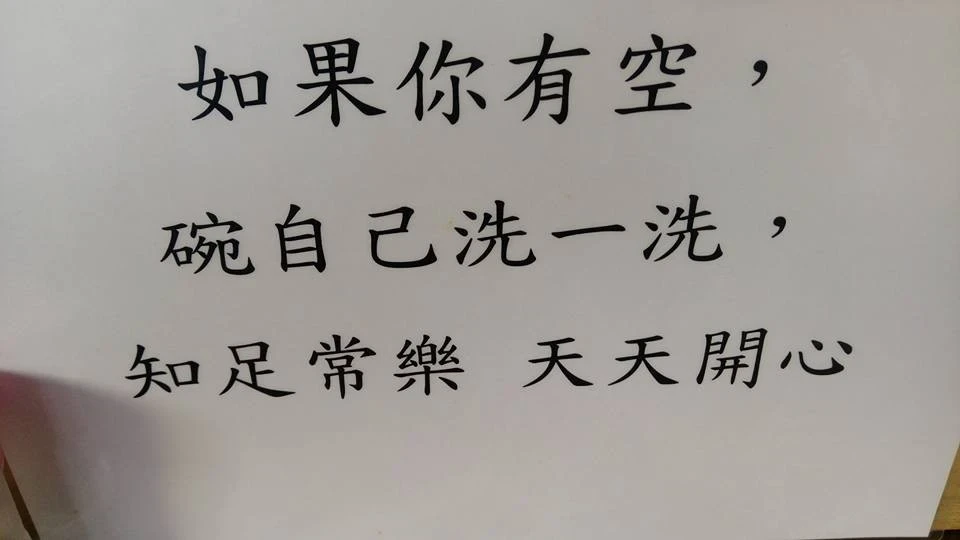 如果你有空，
碗自己洗一洗，
知足常樂 天天開心